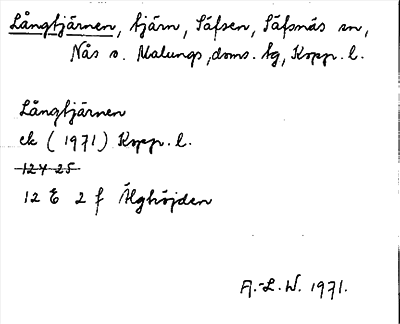 Långtjärnen, tjärn, Säfsen, Säfsnäs sn,
Nås o. Malungs doms. tg, Kopp. l.
Långtjärnen
ek (1971) Kopp. l.
12 Y 25
12 E 2 f Älghöjden
A.-L. W. 1971.